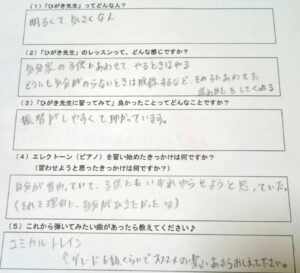 (1)「ひがき先生」ってどんな人?
明るくて 気さくな人
(2)「ひがき先生」のレッスンって、どんな感じですか?
気分家の子供にあわせて やるときはやる
どうにも気分がのらないときは
など その子にあわせた
をしてくれる
(3)「ひがき先生に習ってみて」良かったことってどんなことですか?
振替がしやすくて助かっています。
(4) エレクトーン(ピアノ)を習い始めたきっかけは何ですか?
(習わせようと思ったきっかけは何ですか?)
自分が習っていて、子供にもいずれやらせようと思っていた。
(それを理由に、自分がひきたかった 笑)
(5) これから弾いてみたい曲があったら教えてください♪
コミカルトレイン
グレード6級くらいでオススメの あったらおしえて下さい。